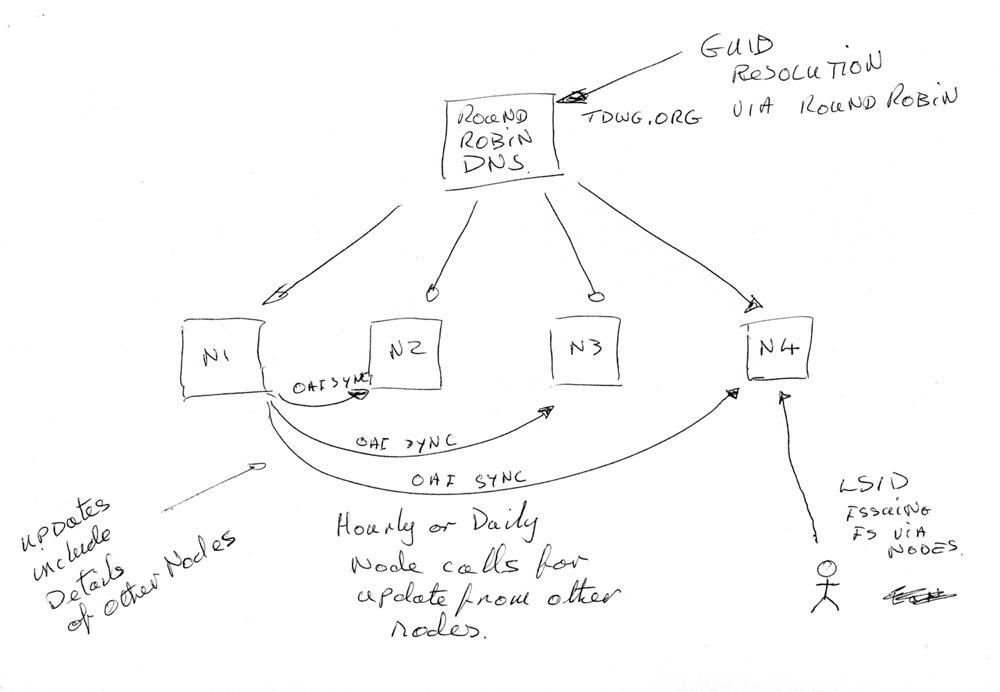 GUID
RESOLUTION
TDWG.ORG VIA ROUND ROBIN
ROUND
ROBIN
DNS.
N1
N2
N3
N4
OAI SYNC
OAI SYNC
OAI SYNC
UPDates
include
Details
of Other Nodes
Hourly or Daily
Node calls for
update from other
nodes.
LSID
ISSUING
IS VIA
NODES.